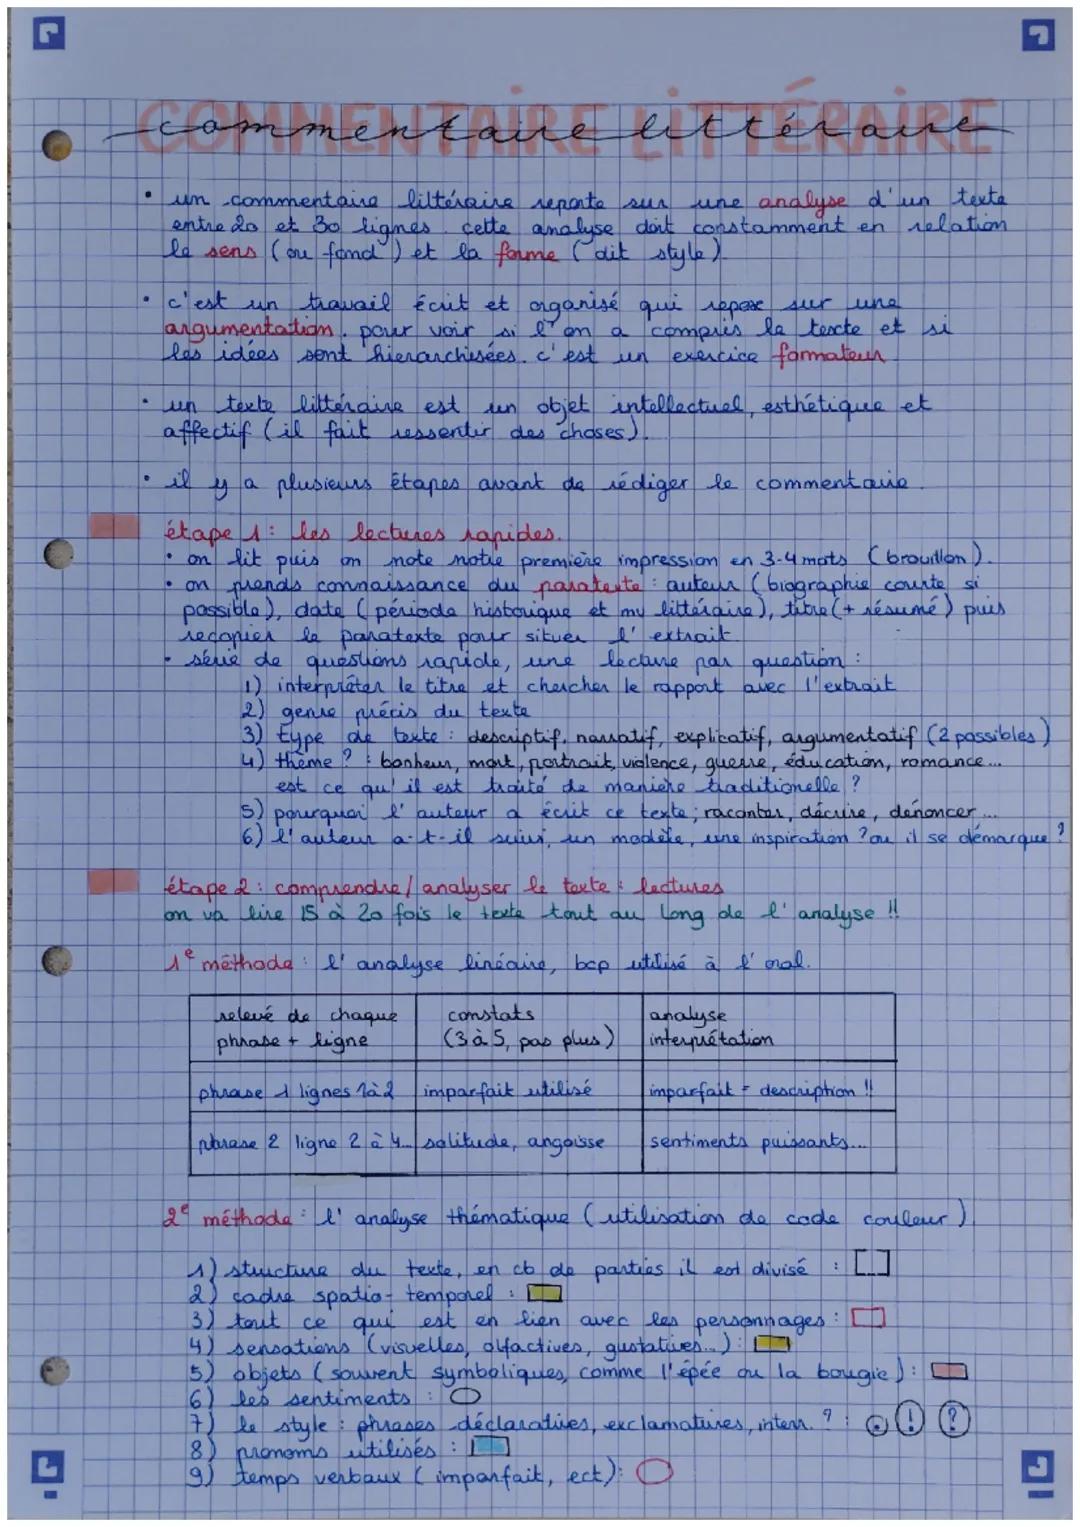 COMMENTAIRE LITTÉRAIRE
commentaire littéraire
• un commentaire littéraire reporte sur une analyse d'un texte
entre 20 et 30 lignes. cette analyse doit constamment en relation
le sens (ou fond) et la forme (dit style).
• c'est un travail écrit et organisé qui repose sur une
argumentation. pour voir si l'on a compris le texte et si
les idées sont hierarchisées. c'est un exercice formateur
• un texte littéraire est un objet intellectuel, esthétique et
affectif (il fait ressentir des choses).
• il y a plusieurs étapes avant de rédiger le commentaire.
étape 1 : les lectures rapides.
• on lit puis on note notre première impression en 3-4 mots (brouillon).
• on prends connaissance du paratexte : auteur (biographie courte si
possible), date (période historique et mv littéraire), titre (+ résumé) puis
recopier le paratexte pour situer l'extrait
• série de questions rapide, une lecture par question :
1) interpréter le titre et chercher le rapport avec l'extrait
2) genre précis du texte
3) type de texte : descriptif, narratif, explicatif, argumentatif (2 possibles)
4) thème ? : bonheur, mort, portrait, violence, guerre, éducation, romance...
est ce qu'il est traité de manière traditionelle ?
5) pourquoi l'auteur a écrit ce texte ; raconter, décrire, dénoncer...
6) l'auteur a-t-il suivi un modèle, une inspiration ? ou il se démarque ?
étape 2 : comprendre / analyser le texte : lectures
on va lire 15 à 20 fois le texte tout au long de l'analyse !!
1e méthode : l'analyse linéaire, bcp utilisé à l'oral.
relevé de chaque phrase + ligne | constats (3 à 5, pas plus) | analyse interprétation
phrase 1 lignes 1 à 2 | imparfait utilisé | imparfait = description !!
phrase 2 ligne 2 à 4... | solitude, angoisse | sentiments puissants...
2e méthode : l'analyse thématique (utilisation de code couleur).
1) structure du texte, en cb de parties il est divisé : [...]
2) cadre spatio-temporel :
3) tout ce qui est en lien avec les personnages :
4) sensations (visuelles, olfactives, gustatives...) :
5) objets (souvent symboliques, comme l'épée ou la bougie) :
6) les sentiments :
7) le style : phrases déclaratives, exclamatives, interr. ? : . ! ?
8) pronoms utilisés :
9) temps verbaux (imparfait, ect) :